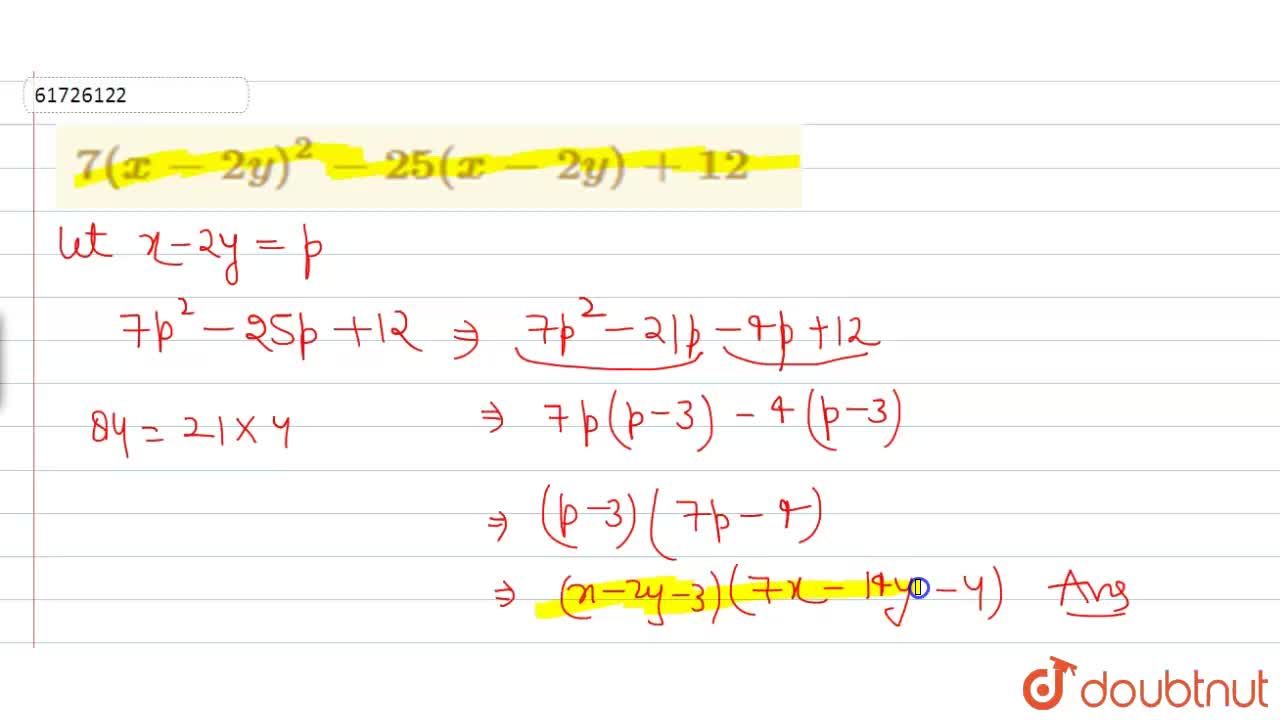 61726122
7(x − 2y)² − 25(x − 2y) + 12
let x−2y = p
7p² − 25p + 12 ⇒ 7p² − 21p − 4p + 12
84 = 21 × 4 ⇒ 7p(p−3) − 4(p−3)
⇒ (p−3)(7p−4)
⇒ (x−2y−3)(7x−14y−4) Ans
doubtnut